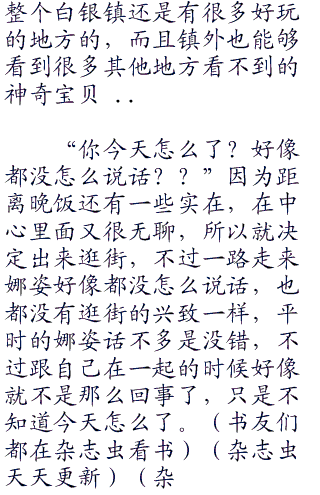 整个白银镇还是有很多好玩
的地方的，而且镇外也能够
看到很多其他地方看不到的
神奇宝贝 ..
“你今天怎么了？好像
都没怎么说话？？”因为距
离晚饭还有一些实在，在中
心里面又很无聊，所以就决
定出来逛街，不过一路走来
娜姿好像都没怎么说话，也
都没有逛街的兴致一样，平
时的娜姿话不多是没错，不
过跟自己在一起的时候好像
就不是那么回事了，只是不
知道今天怎么了。（书友们
都在杂志虫看书）（杂志虫
天天更新）（杂